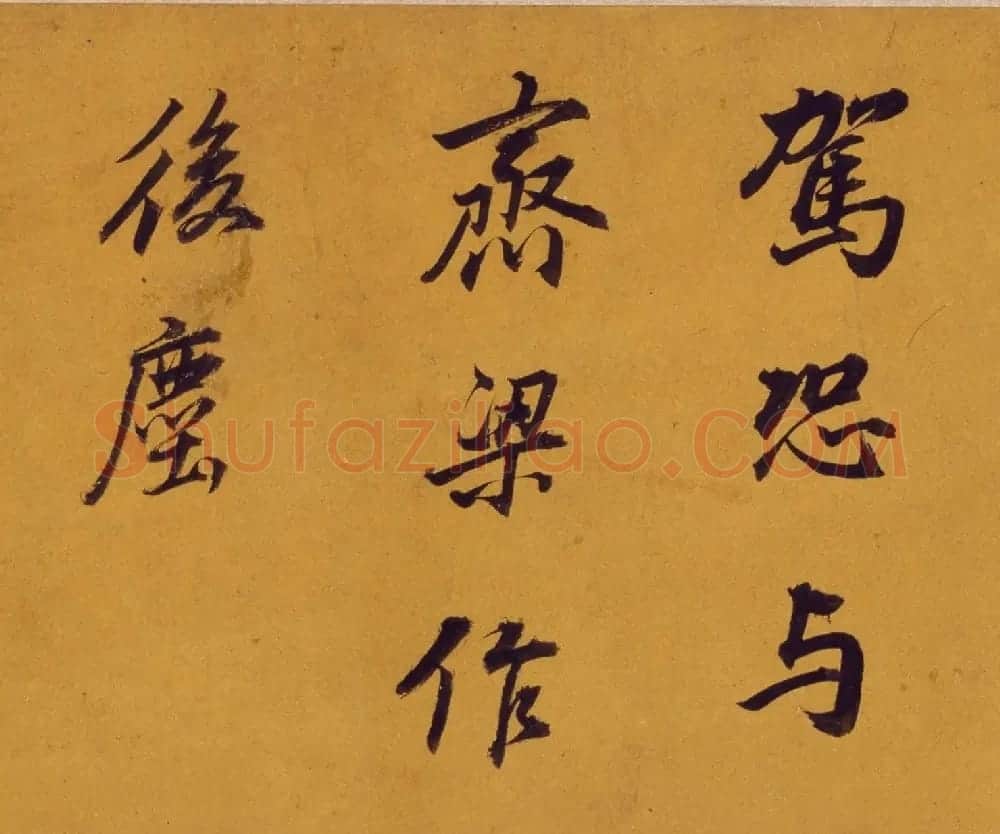 駕恐与
齋梁作
後塵
Shufaziliao.COM